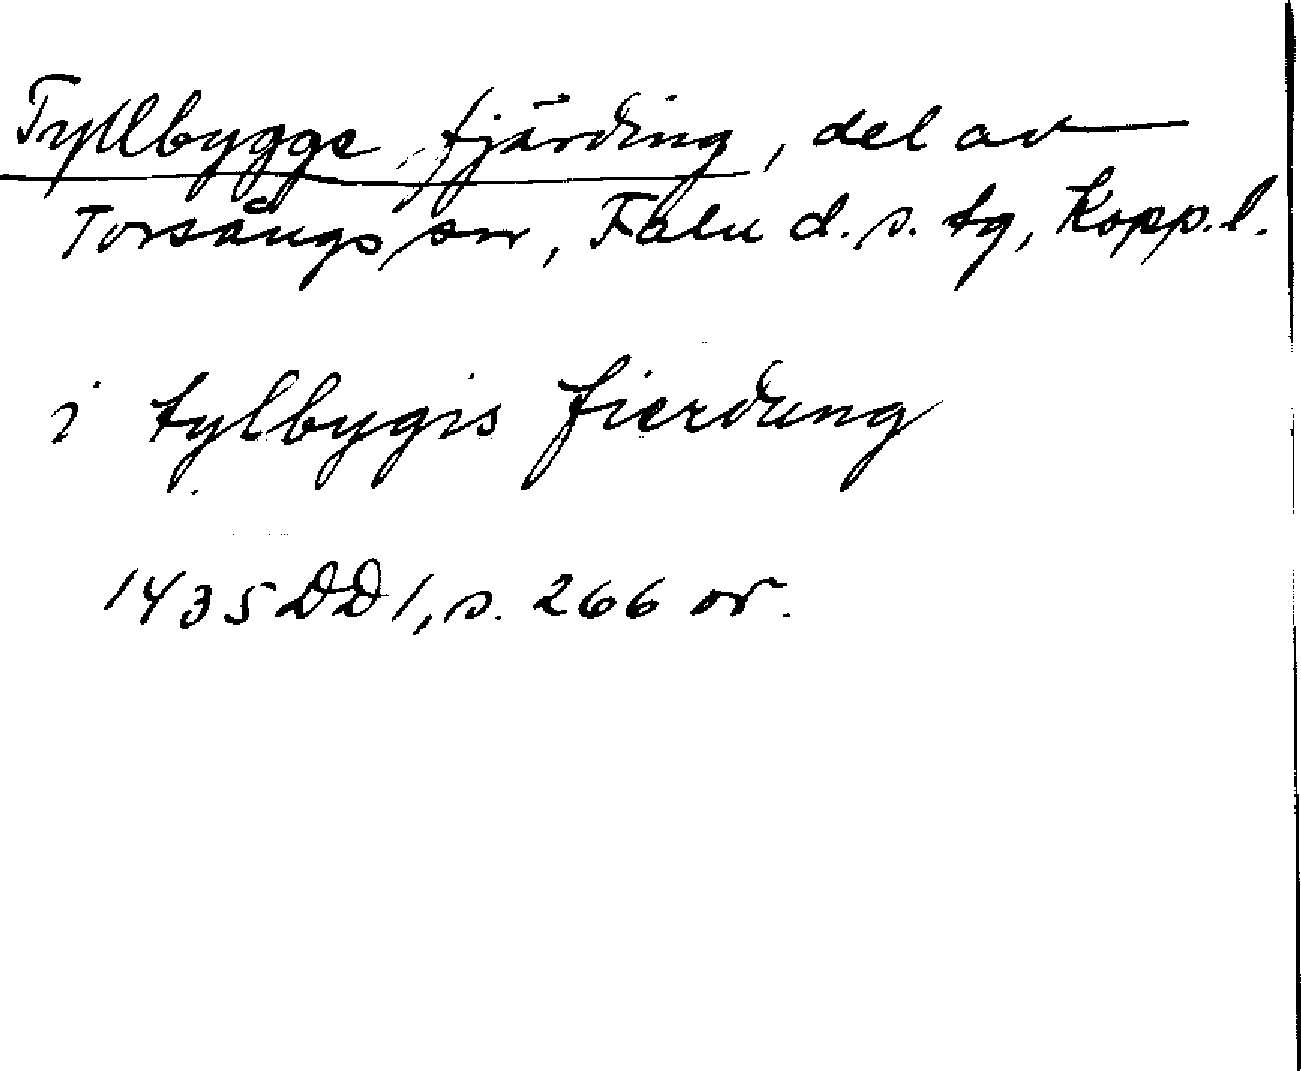 Tyllbygge fjärding, del av
Torsångs sn, Falu d. s. tg, Kopp. l.
i tylbygis fierdung
1435 DD 1, s. 266 or.